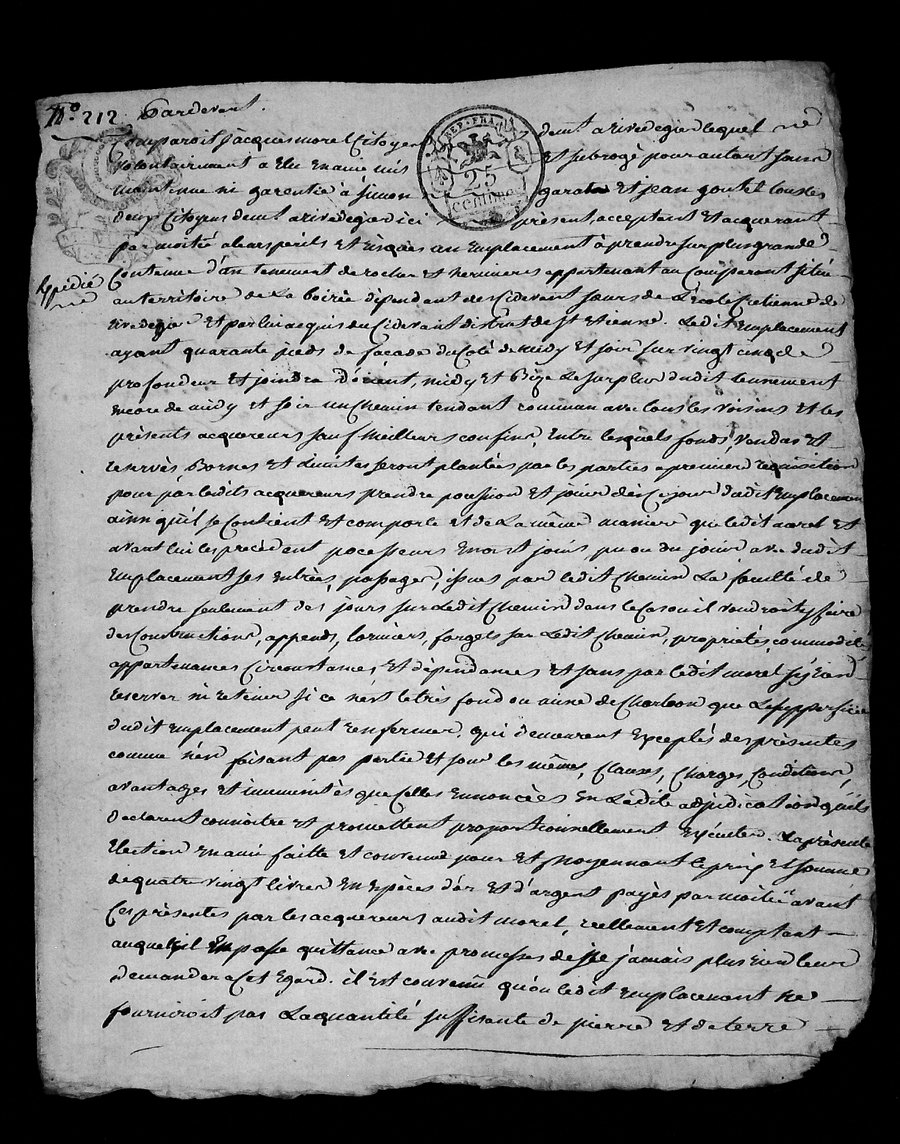 N.o 212. Pardevant.
Comparoit Jacques morel Citoyen demt a rivedegier lequel
volontairement a Elu En amie mis et subrogé pour autant sans
maintenue ni garentie à Simon garat et jean goutel tous les
deux Citoyens demt a rivedegier ici présent acceptent et acquerant
par moitié a leurs perils et risques un Emplacement à prendre sur plus grande
Contenue d'un tenement de rocher et hermieres appartenant au Comparant situé
au territoire de La boirie dépendant des Cidevant sœurs de L'école Cretienne de
rivedegier et par lui acquis du Cidevant district de St Etienne. Ledit Emplacement
ayant quarante pieds de façade du Coté de midy et soir sur vingt cinq de
profondeur et joindre d'orient, midy et Bize Le surplus dudit tennement
encore de midy et soir un Chemin tendant commun avec tous les voisins et les
présents acquereurs sauf meilleurs confins, Entre lesquels fonds, vendus et
reservés Bornes et Limites seront plantées par les parties a premiere requisition
pour par lesdits acquereurs prendre possion et jouir dès ce jour dudit Emplacement
ainsi qu'il se Contient et comporte et de La même maniere que ledit morel et
avant lui les precedent pocesseurs En ont jouis, pu ou du jouir avec dudit
Emplacement ses Entrées, passages, issues par ledit Chemin La faculté de
prendre seulement des jours sur Ledit Chemin dans le Cas ou il voudroit y faire
des Constructions, appends, larmiers, forgets sur Ledit Chemin, proprietés, commodités
appartenances Circonstances, et dépendances et sans par ledit morel s'y rien
reserver ni retenir si ce n'est le très fond ou mine de Charbon que La supperficie
dudit Emplacement peut renfermer, qui demeurent Exceptés des présentes
comme n'en faisant pas partie et sous les mêmes, Clauses, Charges, Conditions,
avantages et immunités que Celles Ennoncées En Ladite adjudication qu'ils
declarent connoitre et promettent proportionnellement Exécuter. La présente
Election En ami faitte et convenue pour et moyennant le prix et somme
de quatre vingt livres En Espèces d'or et d'argent payés par moitié avant
Ces présentes par les acquereurs audit morel, reellement et comptant
auquel il En passe quittance avec promesses de ne jamais plus rien leur
demander a Cet Egard. il est convenu qu'ou ledit Emplacement ne
fourniroit pas La quantité suffisante de pierre et de terre
Expédié
REP. FRA.
25
centimes